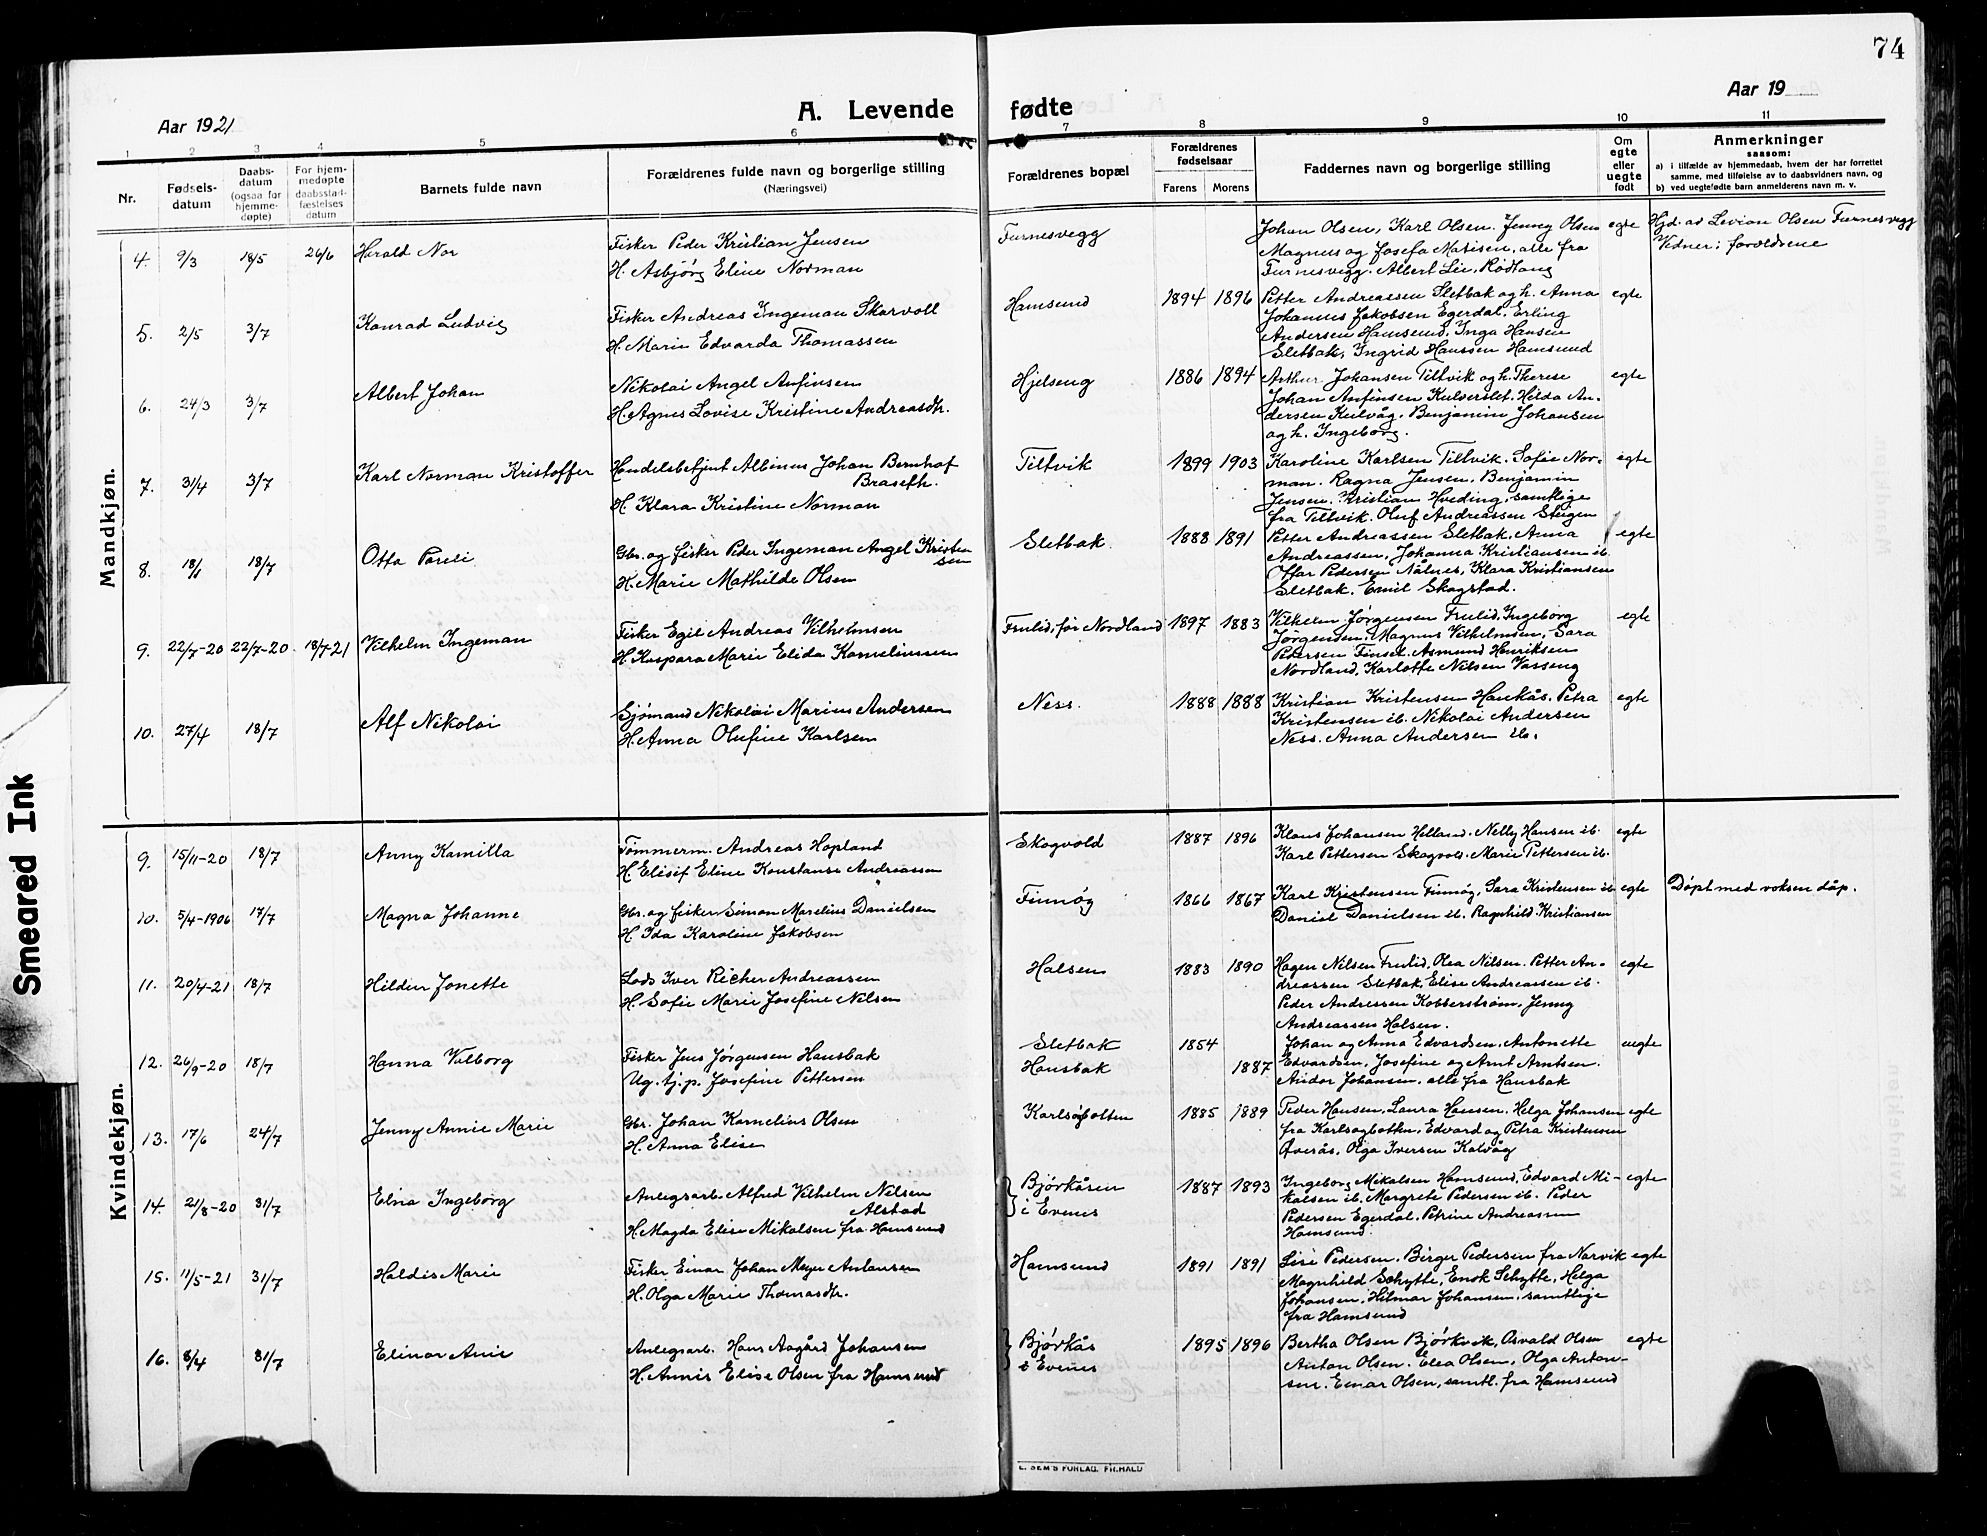 74
Aar 1921
A. Levende fødte
Aar 19
1 2 3 4 5 6 7 8 9 10 11
Nr.
Fødsels-
datum
Daabs-
datum
(ogsaa for
hjemme-
døpte)
For hjem-
medøpte
daabsstad-
fæstelses
datum
Barnets fulde navn
Forældrenes fulde navn og borgerlige stilling
(Næringsvei)
Forældrenes bopæl
Forældrenes
fødselsaar
Farens Morens
Faddernes navn og borgerlige stilling
Om
egte
eller
uegte
født
Anmerkninger
saasom:
a) i tilfælde av hjemmedaab, hvem der har forrettet
samme, med tilføielse av to daabsvidners navn, og
b) ved uegtefødte barn anmelderens navn m. v.
Mandkjøn.
4. 9/3 18/5 26/6 Harald Nor
Fisker Peder Kristian Jensen
H. Asbjørg Eline Norman
Furnesvegg
Johan Olsen, Karl Olsen. Jenney Olsen
Magnus og Josefa Matisen, alle fra
Furnesvegg. Albert Lie, Rødtang
egte
Hjd. av Levion Olsen Furnesvegg
Vidner: forældrene
5. 2/5 3/7 Konrad Ludvig
Fisker Andreas Ingeman Skarvoll
H. Marie Edvarda Thomassen
Hamsund 1894 1896
Petter Andreassen Sletbak og h. Anna
Johannes Jakobsen Egerdal. Erling
Andersen Hamsund, Inga Hansen
Sletbak, Ingrid Hanssen Hamsund
egte
6. 24/3 3/7 Albert Johan
Nikolai Angel Anfinsen
H. Agnes Lovise Kristine Andreasdtr.
Hjelseng 1886 1894
Arthur Johansen Tiltvik og h. Therese
Johan Anfinsen Kulverslet. Hilda An-
dersen Keilvåg. Benjamin Johansen
og h. Ingeborg.
egte
7. 31/4 3/7 Karl Norman Kristoffer
Handelsbetjent Albinus Johan Bernhof
Braseth.
H. Klara Kristine Norman
Tiltvik 1899 1903
Karoline Karlsen Tiltvik. Sofie Nor-
man. Ragna Jensen. Benjamin
Jensen. Kristian Hveding, samtlige
fra Tiltvik. Oluf Andreassen Steigen
egte
8. 18/1 18/7 Otto Pareli
Gbr. og fisker Peder Ingeman Angel Kristen
sen
H. Marie Mathilde Olsen
Sletbak. 1888 1891
Petter Andreassen Sletbak. Anna
Andreassen, Johanna Kristiansen ib.
Ottar Pedersen Nålnes, Klara Kristiansen
Sletbak. Emil Skogstad.
egte
9. 22/7-20 22/7-20 18/7-21 Vilhelm Ingeman
Fisker Egil Andreas Vilhelmsen
H. Kaspara Marie Elida Korneliussen
Frulid, før Nordland 1897 1883
Vilhelm Jørgensen Frulid, Ingeborg
Jørgensen, Magnus Vilhelmsen, Sara
Pedersen Finset. Asmund Henriksen
Nordland, Karlotte Nilsen Vasseng
egte
10. 27/4 18/7 Alf Nikolai
Sjømand Nikolai Marius Andersen
H. Anna Olufine Karlsen
Ness. 1888 1888
Kristian Kristensen Haukås. Petra
Kristensen ib. Nikolai Andersen
Ness. Anna Andersen ib.
egte
Kvindekjøn.
9. 15/11-20 18/7 Anny Kamilla
Tømmerm. Andreas Hopland
H Elisef Eline Konstanse Andreassen
Skogvold 1887 1896
Klaus Johansen Helland. Nelly Hansen ib.
Karl Pettersen Skogvold. Marie Pettersen ib.
egte
10. 5/4-1906 17/7 Magna Johanne
Gbr. og fisker Simon Marelius Danielsen
H. Ida Karoline Jakobsen
Finnøy 1866 1867
Karl Kristensen Finnøy, Sara Kristensen ib
Daniel Danielsen ib. Ragnhild Kristiansen
egte
Døpt med voksen dåp.
11. 20/4-21 18/7 Hildur Jonette
Lods Iver Richer Andreassen
H. Sofie Marie Josefine Nilsen
Halsen 1883 1890
Hagen Nilsen Frulid. Olea Nilsen. Petter An-
dreassen Sletbak, Elise Andreassen ib.
Peder Andreassen Kobberstrøm, Jenny
Andreassen Halsen.
egte
12. 26/9-20 18/7 Hanna Valborg
Fisker Jens Jørgensen Hansbak
Ug. tj.p. Josefine Pettersen
Sletbak 1854
Hansbak 1887
Johan og Anna Edvardsen, Antonette
Edvardsen, Josefine og Arnt Arntsen.
Andor Johansen. alle fra Hansbak
uegte
13. 17/6 24/7 Jenny Annie Marie
Gbr. Johan Kornelius Olsen
H. Anna Elise
Karlsøbotten 1885 1889
Peder Hansen, Laura Hansen. Helga Johansen
fra Karlsøybotten, Edvard og Petra Kristensen
Averås, Olga Iversen Kalvåg
egte
14. 21/8-20 31/7 Elna Ingeborg
Anlegsarb. Alfred Vilhelm Nilsen
Alstad
H. Magda Elise Mikalsen fra Hamsund
Bjørkåsen
i Evenes
1887 1893
Ingeborg Mikalsen Hamsund, Edvard Mi-
kalsen ib. Margrete Pedersen ib. Peder
Pedersen Egerdal. Petrine Andreassen
Hamsund.
egte
15. 11/5-21 31/7 Haldis Marie
Fisker Einar Johan Meyer Antonsen
H. Olga Marie Thomasdtr.
Hamsund 1891 1891
Lise Pedersen. Birger Pedersen fra Narvik
Magnhild Schytte, Enok Schytte, Helga
Johansen, Hilmar Johansen, samtlige
fra Hamsund
egte
16. 8/4 31/7 Elinor Anie
Anlegsarb. Hans Aagård Johansen
H. Annie Elise Olsen fra Hamsund
Bjørkås
i Evenes
1895 1896
Bertha Olsen Bjørkvik, Osvald Olsen
Anton Olsen. Elea Olsen, Olga Anton-
sen. Einar Olsen, samtl. fra Hamsund
egte
E. SEM'S FORLAG, FR.HALD
Smeared Ink